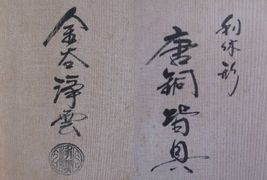 利休形
唐銅皆具
金谷浄雲